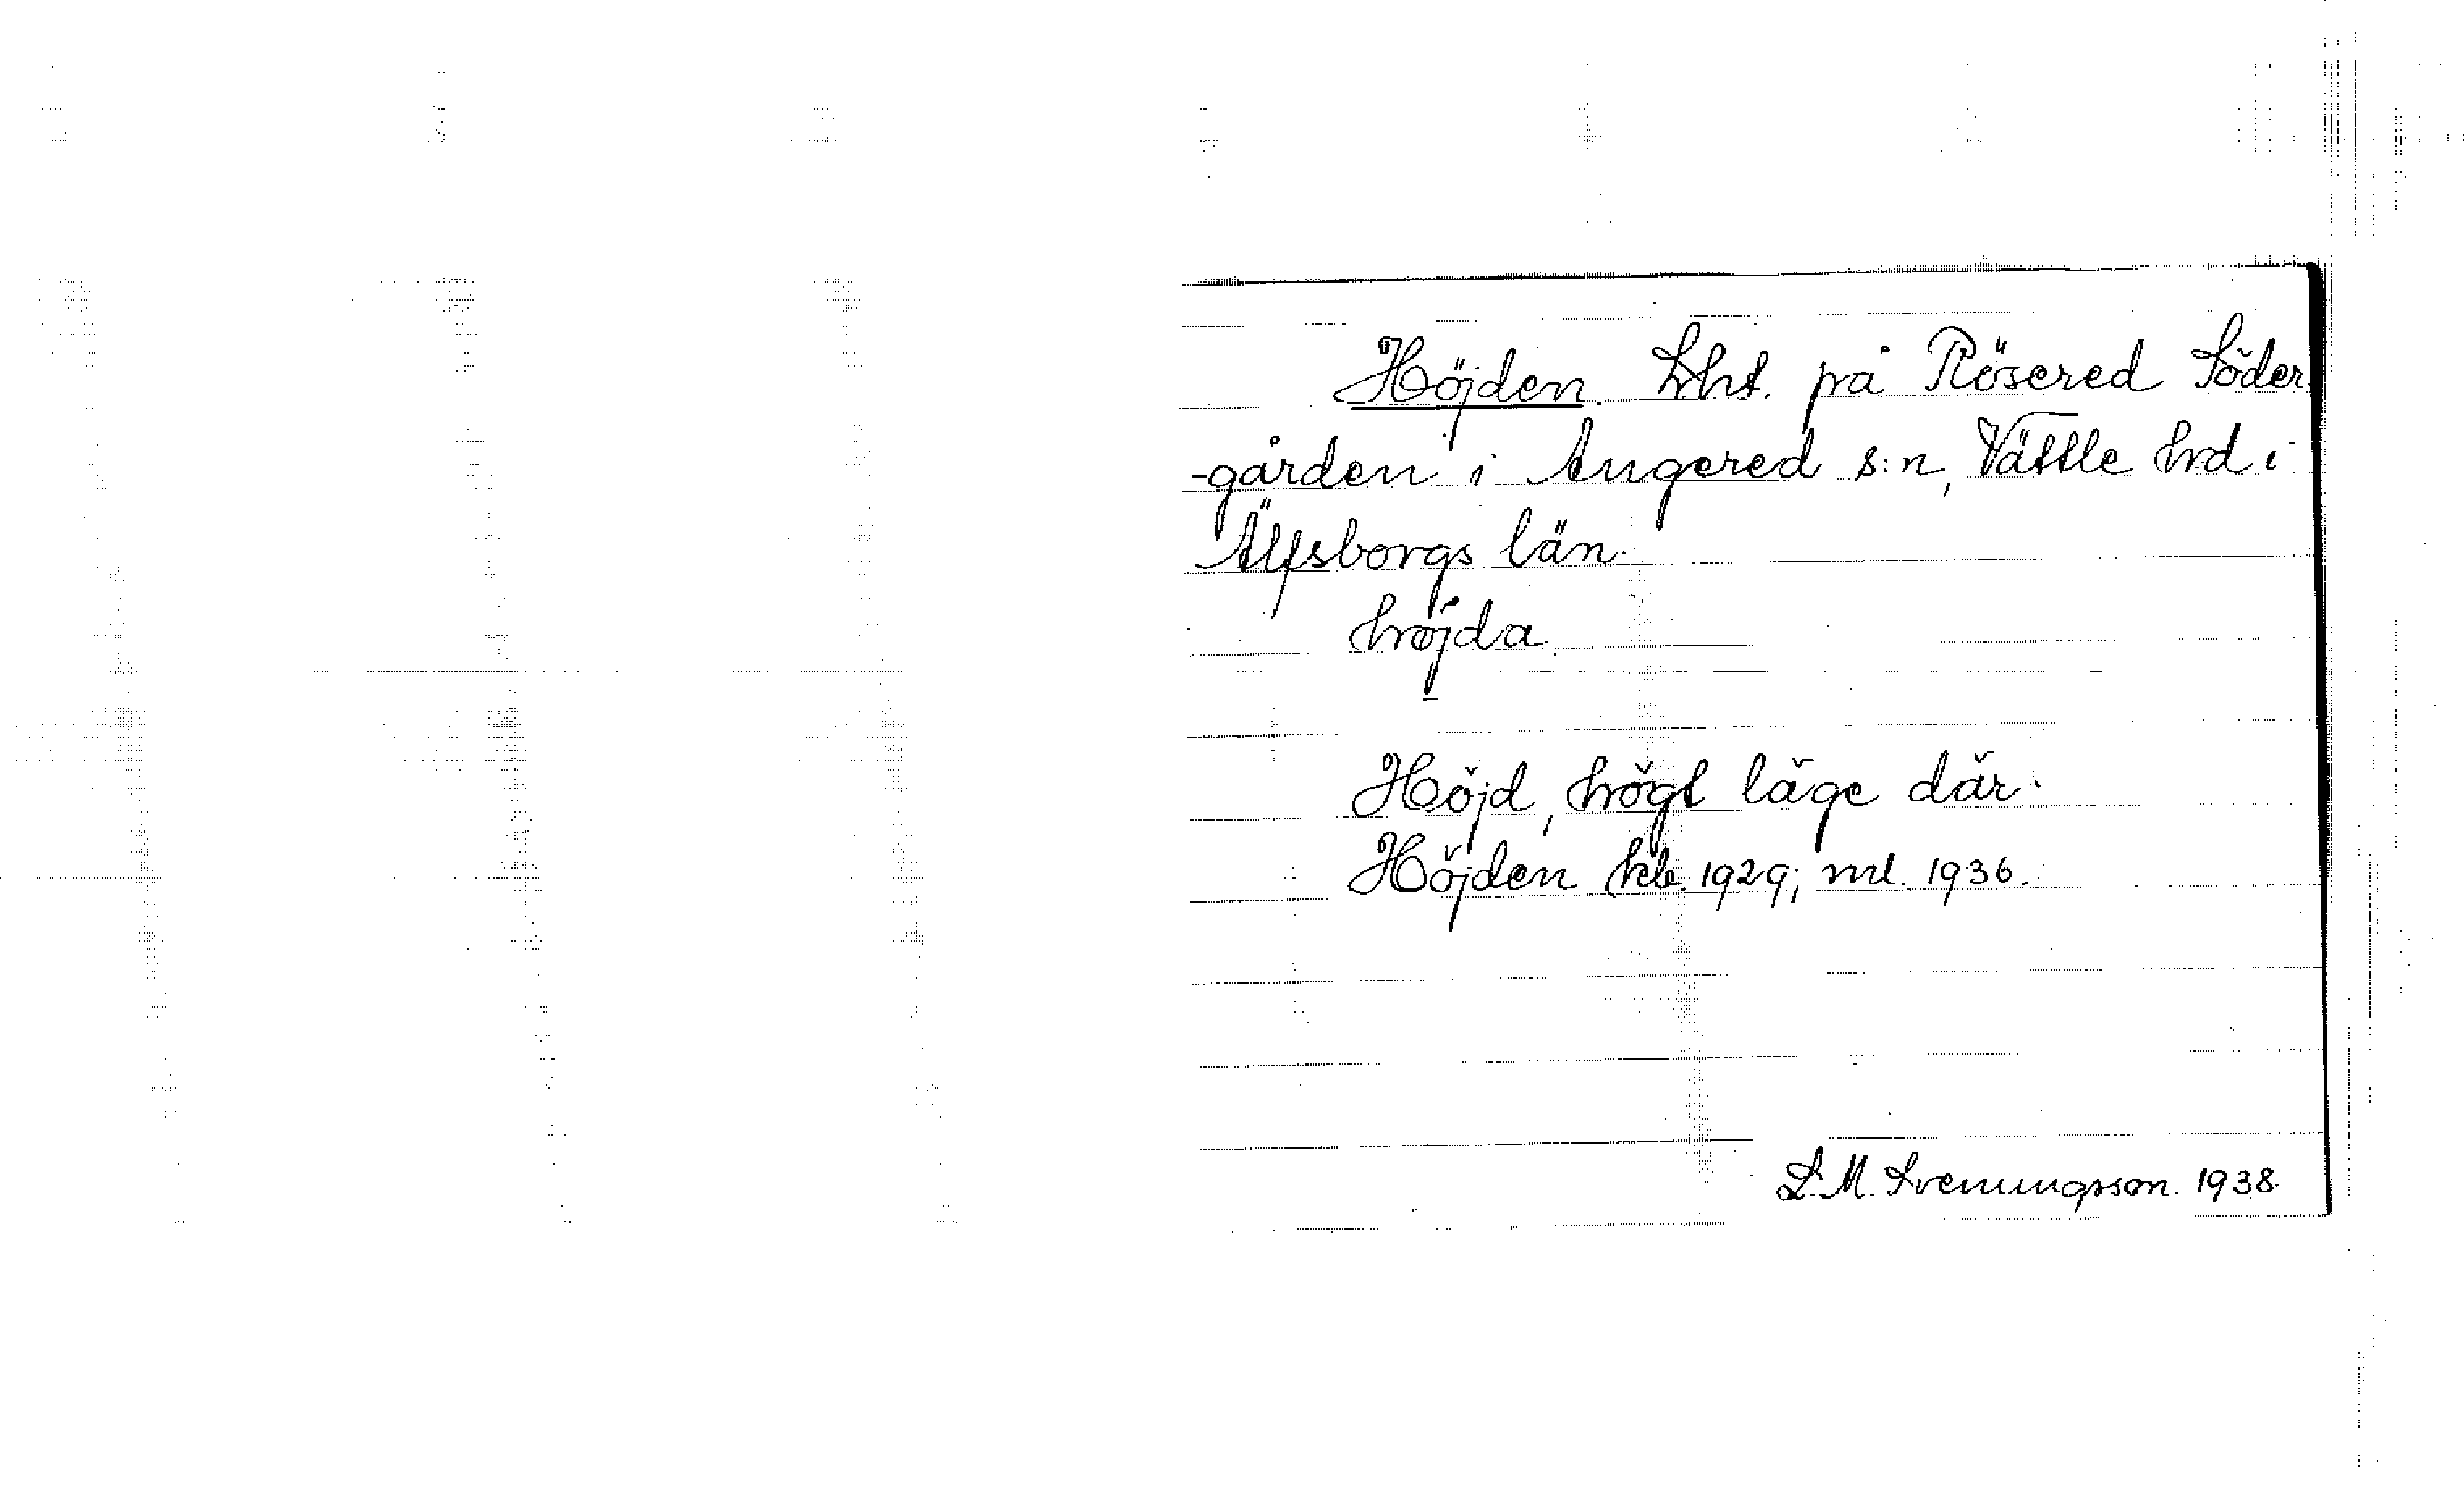 Höjden. Lht. på Rösered Söder-
-gården i Angered s:n, Vättle hrd i
Älfsborgs län.
höjda.
Höjd, högt läge där.
Höjden kb. 1929; ml. 1936.
S. M. Svenungsson. 1938.